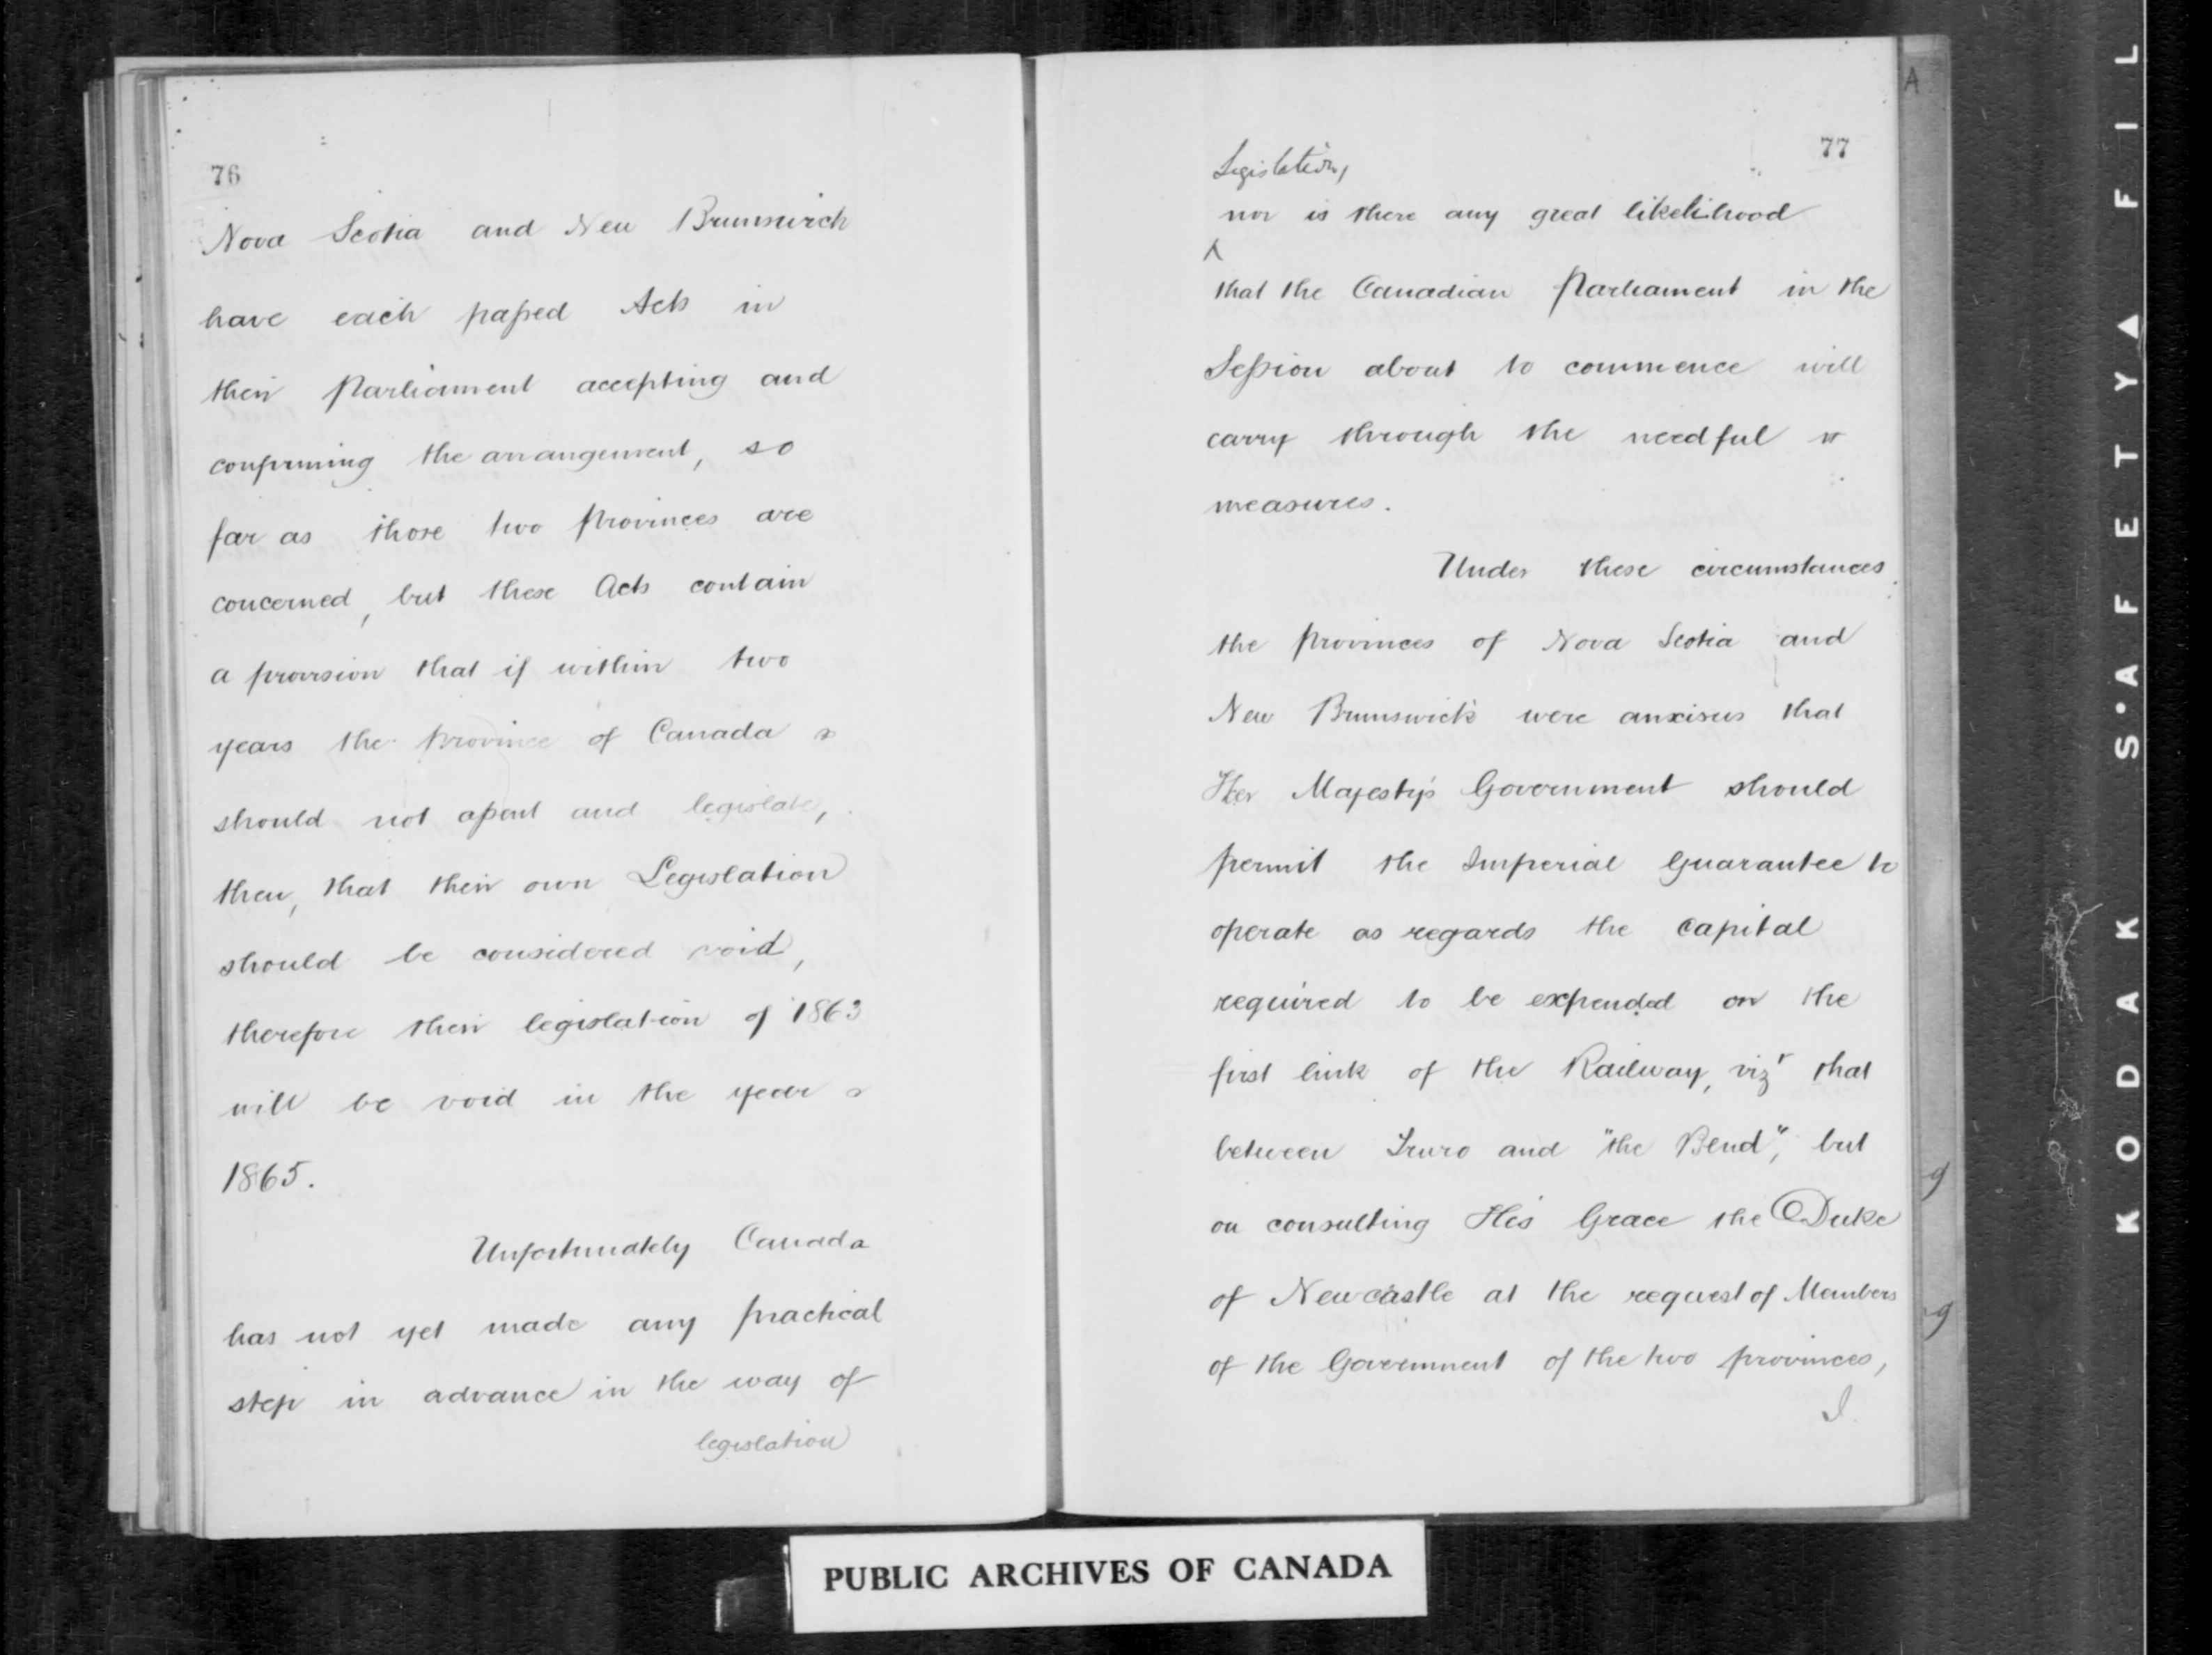 76
Nova Scotia and New Brunswick
have each passed Acts in
their Parliament accepting and
confirming the arrangement, so
far as those two provinces are
concerned, but these Acts contain
a provision that if within two
years the province of Canada
should not assent and legislate,
then, that their own Legislation
should be considered void,
therefore their legislation of 1863
will be void in the year
1865.
Unfortunately Canada
has not yet made any practical
step in advance in the way of
legislation
77
Legislation,
nor is there any great likelihood
that the Canadian Parliament in the
Session about to commence will
carry through the needful
measures.
Under these circumstances
the provinces of Nova Scotia and
New Brunswick were anxious that
Her Majesty's Government should
permit the Imperial Guarantee to
operate as regards the capital
required to be expended on the
first link of the Railway, vizt that
between Truro and "the Bend", but
on consulting His Grace the Duke
of Newcastle at the request of Members
of the Government of the two provinces,
I.
A
g
g
PUBLIC ARCHIVES OF CANADA
KODAK S'AFETY▲FIL